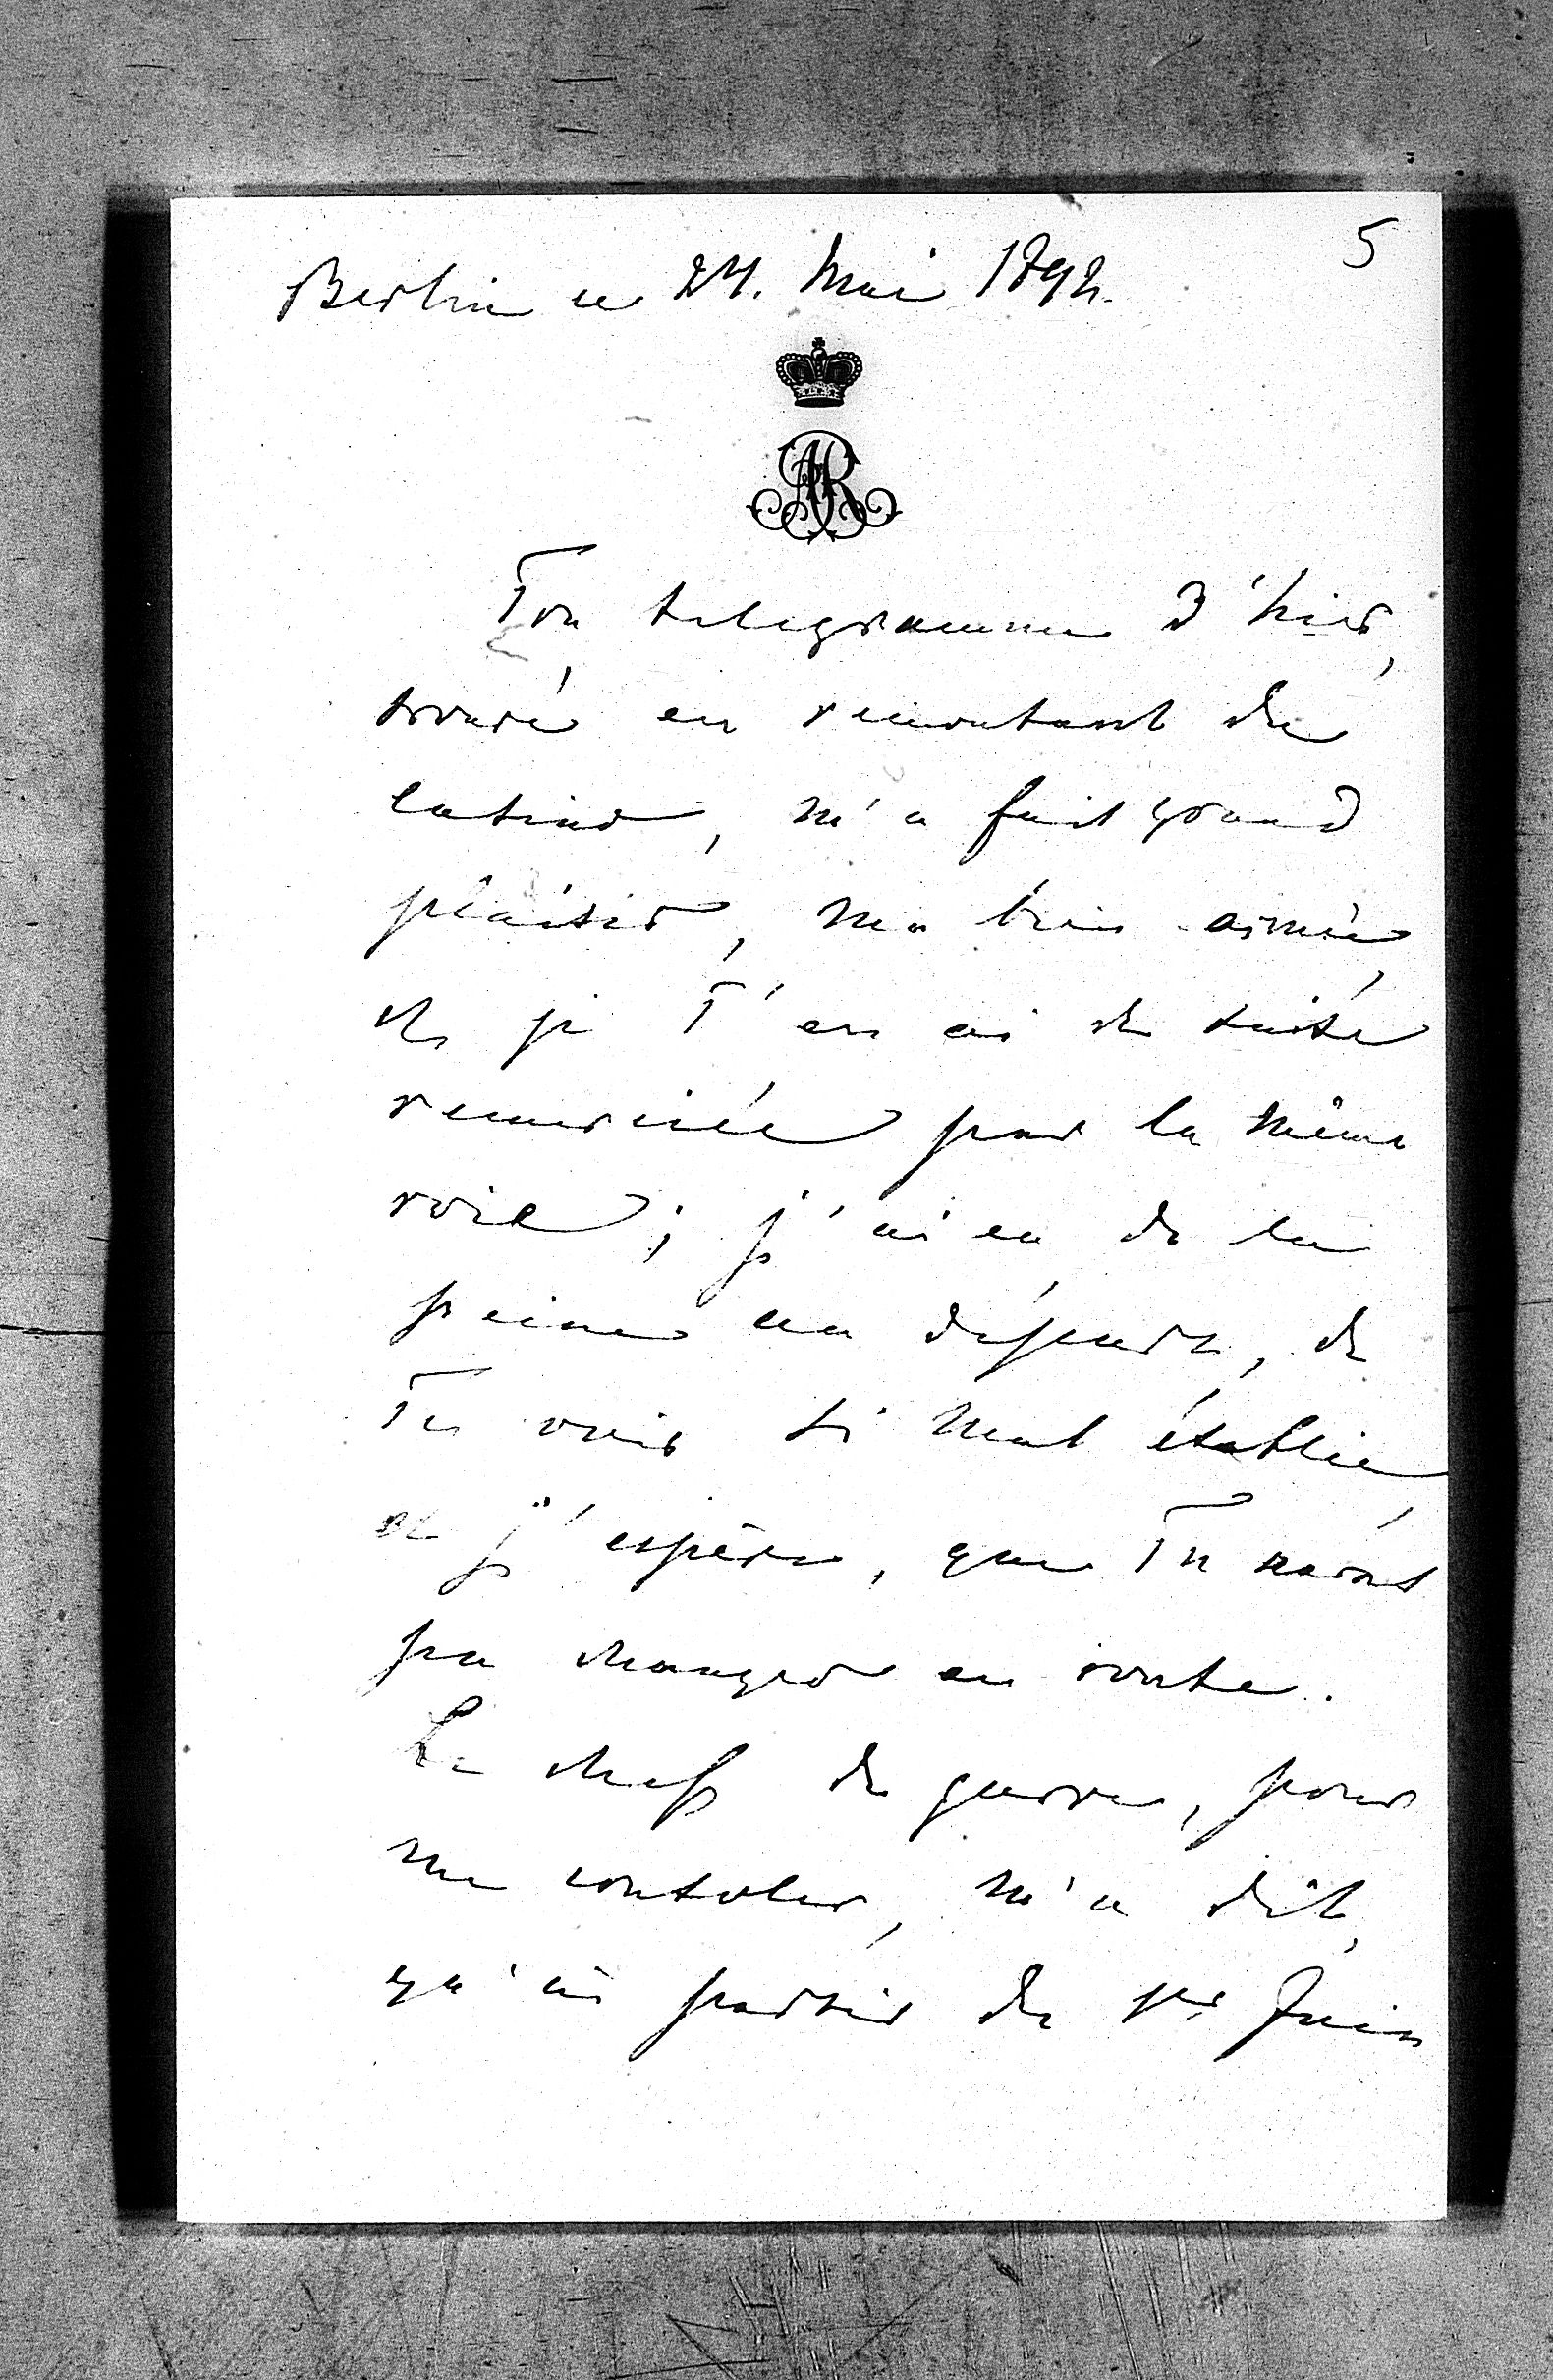 5
Berlin ce 24. Mai 1892.
AR
Ton telegramme d'hier,
trouvé en remontant du
casino, m'a fait grand
plaisir, ma bien aimée,
et je T'en ai de suite
remerciée par la même
voie; j'ai eu de la
peine au départ, de
Te voir si mal établie
et j'espère, que Tu auras
pu changer en route.
Le chef de guerre, pour
me consoler, m'a dit,
qu'à partir du 1er Juin